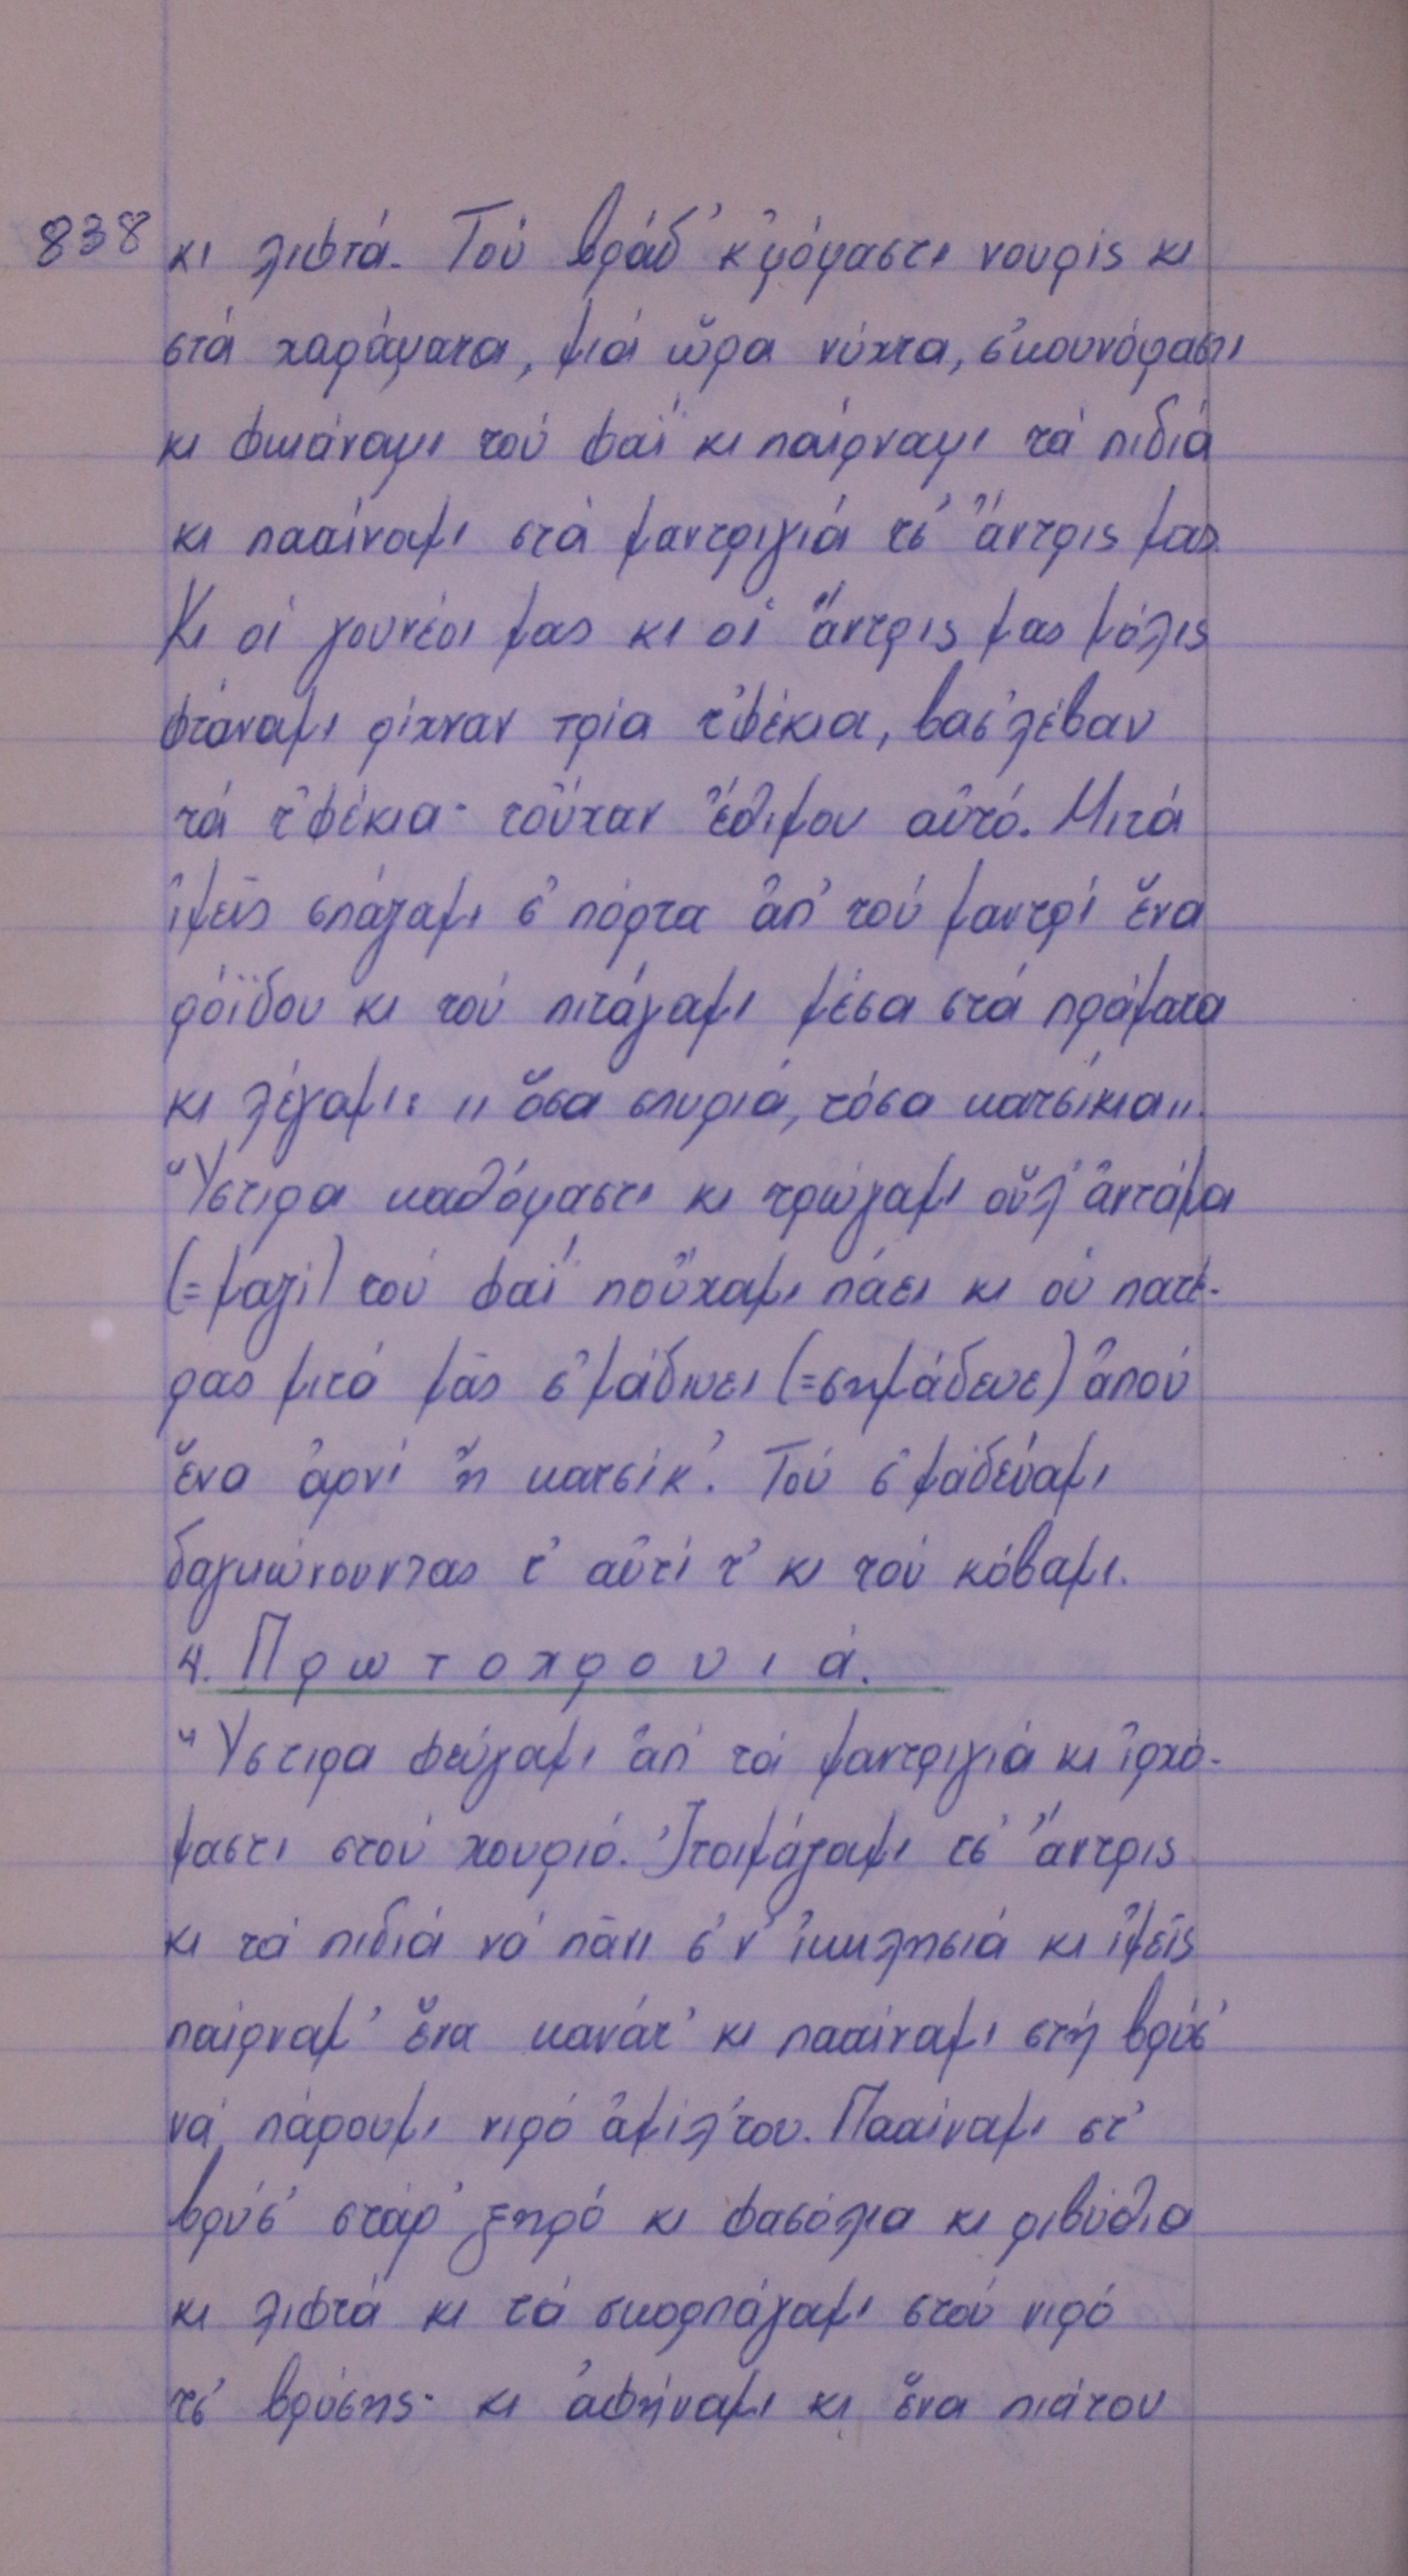 838 κι λιφτά. Τού βράδ' κ'μόμαστι νουρίς κι
στά χαράματα, μιά ὥρα νύχτα, σ'κουνόμαστι
κι φκιάναμι τού φαΐ κι παίρναμι τά πιδιά
κι πααίναμι στά μαντριγιά τσ' ἄντρις μας.
Κι οἱ γουνέοι μας κι οἱ ἄντρις μας μόλις
φτάναμι ρίχναν τρία τ'φέκια, βασ'λέβαν
τά τ'φέκια· τοὖχαν ἔθιμου αὐτό. Μιτά
ἰμεῖς σπάζαμι σ' πόρτα ἀπ' τού μαντρί ἕνα
ρόϊδου κι τού πιτάγαμι μέσα στά πράματα
κι λέγαμι: „ ὅσα σπυριά, τόσα κατσίκια„.
Ὕστιρα καθόμαστι κι τρώγαμι οὕλ' ἀντάμα
(=μαζί) τού φαΐ πούχαμι πάει κι οὐ πατέ-
ρας μιτά μᾶς σ'μάδιυει (=σημάδευε) ἀπού
ἕνα ἀρνί ἤ κατσίκ'. Τού σ'μαδεύαμι
δαγκώνουντας τ' αὐτί τ' κι τού κόβαμι.
4. Πρωτοχρονιά.
Ὕστιρα φεύγαμι ἀπ' τά μαντριγιά κι ἰρχό-
μαστι στού χουριό. Ἰτοιμάζαμι τσ' ἄντρις
κι τά πιδιά νά πᾶνι σ'ν' ἰκκλησιά κι ἰμεῖς
παίρναμ' ἕνα κανάτ' κι πααίναμι στή βρύσ'
νά πάρουμι νιρό ἀμίλ'του. Πααίναμι στ'
βρύσ' στάρ' ξηρό κι φασόλια κι ριβύθια
κι λιφτά κι τά σκορπάγαμι στού νιρό
τσ' βρύσης· κι ἀφήναμι κι ἕνα πιάτου